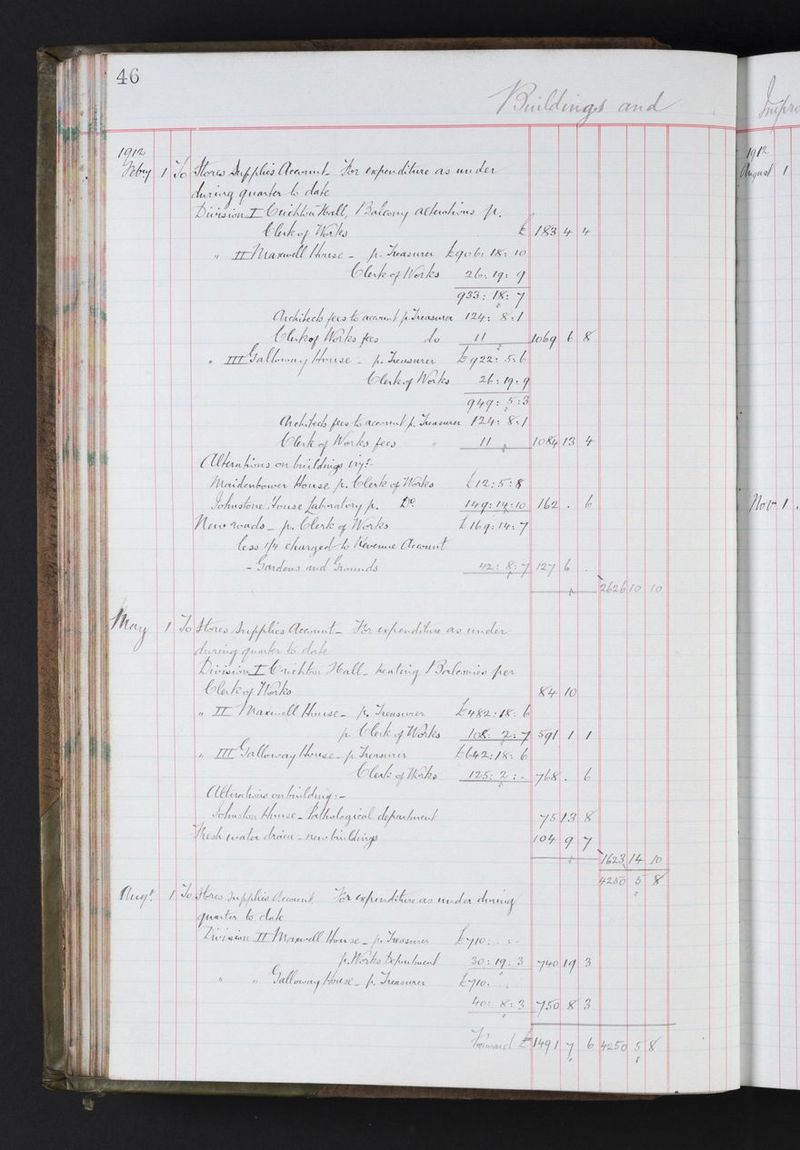 46
Buildings and
1912
Feby 1 To Stores Supplies Account - For expenditure as under
during quarter to date
Division I Crichton Hall, Balcony alterations pr.
Clerk of Works £ 183 4 4
" II Maxwell House - pr. Treasurer £906: 18: 10
Clerk of Works 26: 19: 9
933: 18: 7
Architects fees to account pr Treasurer 124: 8: 1
Clerk of Works fees do 11 1069 6 8
" III Galloway House - pr. Treasurer £922: 5: 6
Clerk of Works 26: 19: 9
949: 5: 3
Architects fees to account pr. Treasurer 124: 8: 1
Clerk of Works fees " 11 1084 13 4
Alterations on buildings viz:-
Maidenbower House pr. Clerk of Works £12: 5: 8
Johnstone House Laboratory pr. Do. 149: 14: 10 162 . 6
New roads - pr. Clerk of Works £169: 14: 7
less 1/4 charged to Revenue Account
- Gardens and Grounds 42: 8: 7 127 6 .
2626 10 10
May 1 To Stores Supplies Account - For expenditure as under
during quarter to date
Division I Crichton Hall - heating Balconies per
Clerk of Works 84 10
" II Maxwell House - pr. Treasurer £482: 18: 6
pr. Clerk of Works 108: 2: 7 591 1 1
" III Galloway House - pr. Treasurer £642: 18: 6
Clerk of Works 125: 2: - 768 . 6
Alterations on buildings:-
Johnston House - Pathological department 75 13 8
Fresh water drain - new buildings 104 9 7
1623 14 10
4250 5 8
Augt. 1 To Stores Supplies Account. For expenditure as under during
quarter to date
Division II Maxwell House - pr. Treasurer £710: - : -
pr. Works Department 30: 19: 3 740 19 3
" " Galloway House - pr. Treasurer £710: . :
40: 8: 3 750 8 3
Forward £1491 7 6 4250 5 8
Impro
1912
August 1
Novr. 1